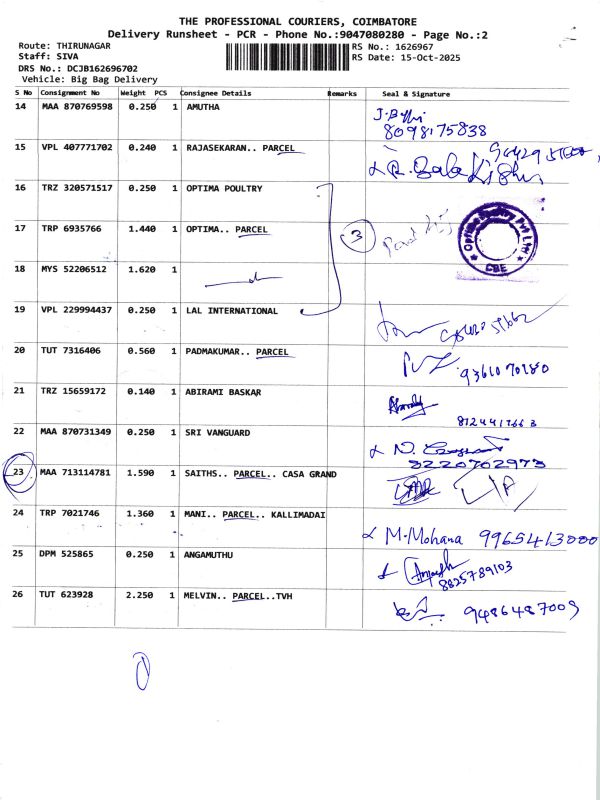 THE PROFESSIONAL COURIERS, COIMBATORE
Delivery Runsheet - PCR - Phone No.:9047080280 - Page No.:2
Route: THIRUNAGAR RS No.: 1626967
Staff: SIVA RS Date: 15-Oct-2025
DRS No.: DCJB162696702
Vehicle: Big Bag Delivery
S No Consignment No Weight PCS Consignee Details Remarks Seal & Signature
14 MAA 870769598 0.250 1 AMUTHA
8098175838
15 VPL 407771702 0.240 1 RAJASEKARAN.. PARCEL
16 TRZ 320571517 0.250 1 OPTIMA POULTRY
17 TRP 6935766 1.440 1 OPTIMA.. PARCEL 3
CBE
18 MYS 52206512 1.620 1
19 VPL 229994437 0.250 1 LAL INTERNATIONAL
20 TUT 7316406 0.560 1 PADMAKUMAR.. PARCEL
9361070280
21 TRZ 15659172 0.140 1 ABIRAMI BASKAR
22 MAA 870731349 0.250 1 SRI VANGUARD
8220702973
23 MAA 713114781 1.590 1 SAITHS.. PARCEL.. CASA GRAND
24 TRP 7021746 1.360 1 MANI.. PARCEL.. KALLIMADAI
M.Mohana 9965413000
25 DPM 525865 0.250 1 ANGAMUTHU
8825789103
26 TUT 623928 2.250 1 MELVIN.. PARCEL..TVH
9486487009